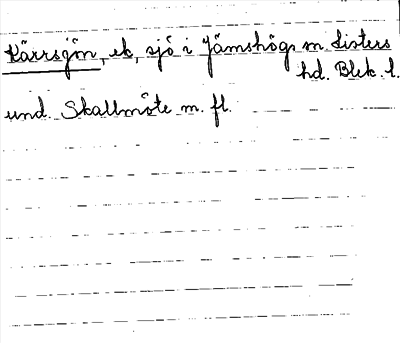 Kärrsjön, ek, sjö i Jämshögs m. Listers
hd. Blek. l.
und. Skallmöte m. fl.